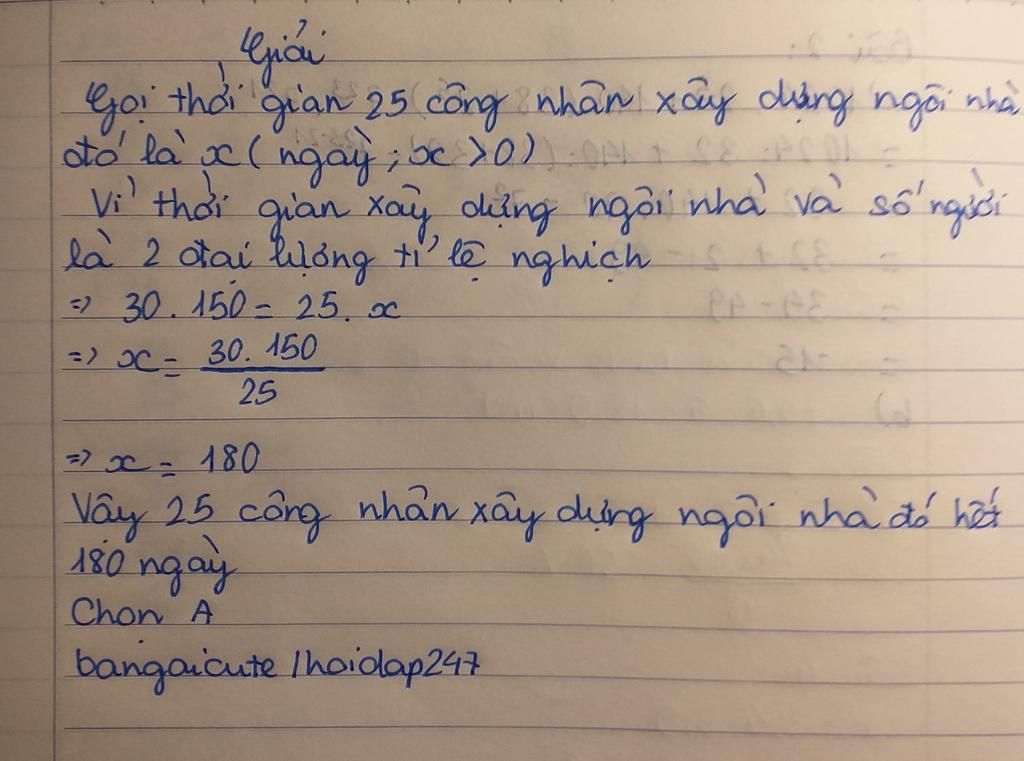 Giải
Gọi thời gian 25 công nhân xây dựng ngôi nhà
đó là x (ngày; x > 0)
Vì thời gian xây dựng ngôi nhà và số người
là 2 đại lượng tỉ lệ nghịch
=> 30. 150 = 25. x
=> x = \frac{30. 150}{25}
=> x = 180
Vậy 25 công nhân xây dựng ngôi nhà đó hết
180 ngày
Chọn A
bangaicute /hoidap247